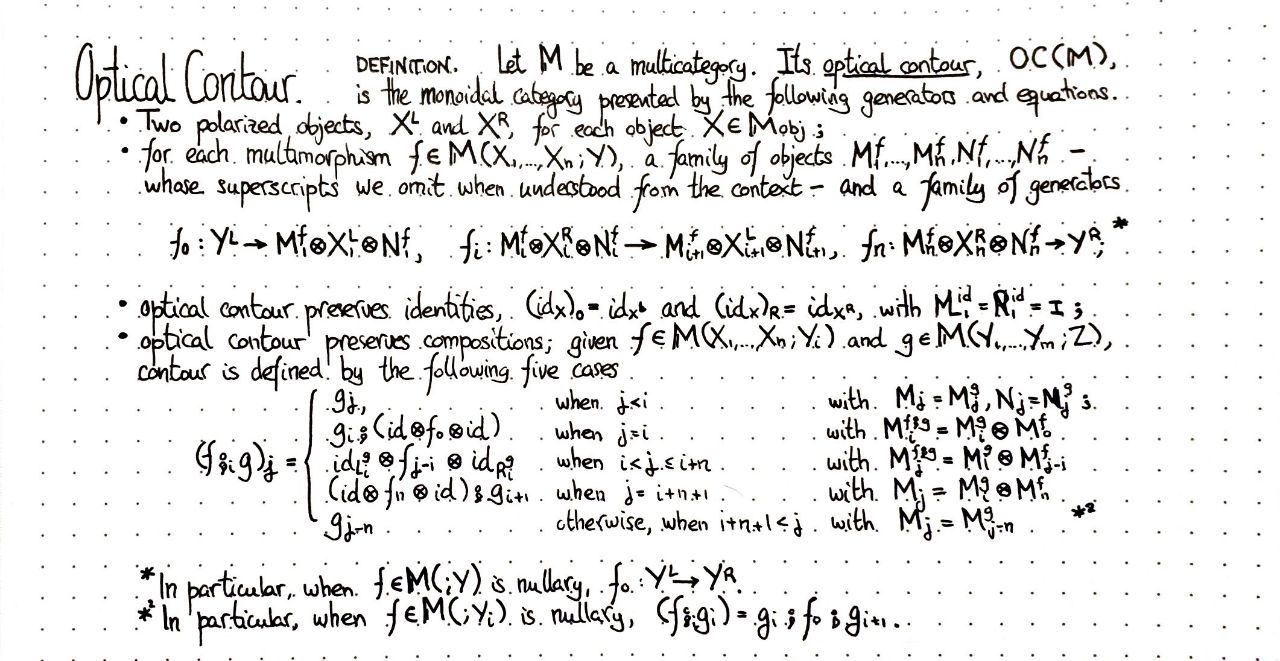 Optical Contour.
DEFINITION. Let M be a multicategory. Its optical contour, OC(M),
is the monoidal category presented by the following generators and equations.
• Two polarized objects, Xᴸ and Xᴿ, for each object X∈M_obj;
• for each multimorphism f∈M(X₁,...,Xₙ;Y), a family of objects M₁ᶠ,...,Mₙᶠ,N₁ᶠ,...,Nₙᶠ –
whose superscripts we omit when understood from the context – and a family of generators
f₀ : Yᴸ → M₁ᶠ⊗X₁ᴸ⊗N₁ᶠ, fᵢ : Mᵢᶠ⊗Xᵢᴿ⊗Nᵢᶠ → Mᵢ₊₁ᶠ⊗Xᵢ₊₁ᴸ⊗Nᵢ₊₁ᶠ, fₙ : Mₙᶠ⊗Xₙᴿ⊗Nₙᶠ → Yᴿ; *
• optical contour preserves identities, (id_X)₀ = id_Xᴸ and (id_X)_R = id_Xᴿ, with M₁ⁱᵈ = R₁ⁱᵈ = I ;
• optical contour preserves compositions; given f∈M(X₁,...,Xₙ;Yᵢ) and g∈M(Y₁,...,Yₘ;Z),
contour is defined by the following five cases
gⱼ, when j<i with Mⱼ = Mⱼᵍ, Nⱼ = Nⱼᵍ ;
gᵢ ⨾ (id⊗f₀⊗id) when j=i with Mᵢᶠ⨾ᵍ = Mᵢᵍ ⊗ M₀ᶠ
(f⨾ᵢg)ⱼ = id_Lᵢᵍ ⊗ fⱼ₋ᵢ ⊗ id_Rᵢᵍ when i<j≤i+n with Mⱼᶠ⨾ᵍ = Mᵢᵍ ⊗ Mⱼ₋ᵢᶠ
(id⊗fₙ⊗id) ⨾ gᵢ₊₁ when j = i+n+1 with Mⱼ = Mᵢᵍ ⊗ Mₙᶠ
gⱼ₋ₙ otherwise, when i+n+1<j with Mⱼ = Mⱼ₋ₙᵍ *²
* In particular, when f∈M(;Y) is nullary, f₀ : Yᴸ → Yᴿ.
*² In particular, when f∈M(;Yᵢ) is nullary, (f⨾gᵢ) = gᵢ ⨾ f₀ ⨾ gᵢ₊₁.